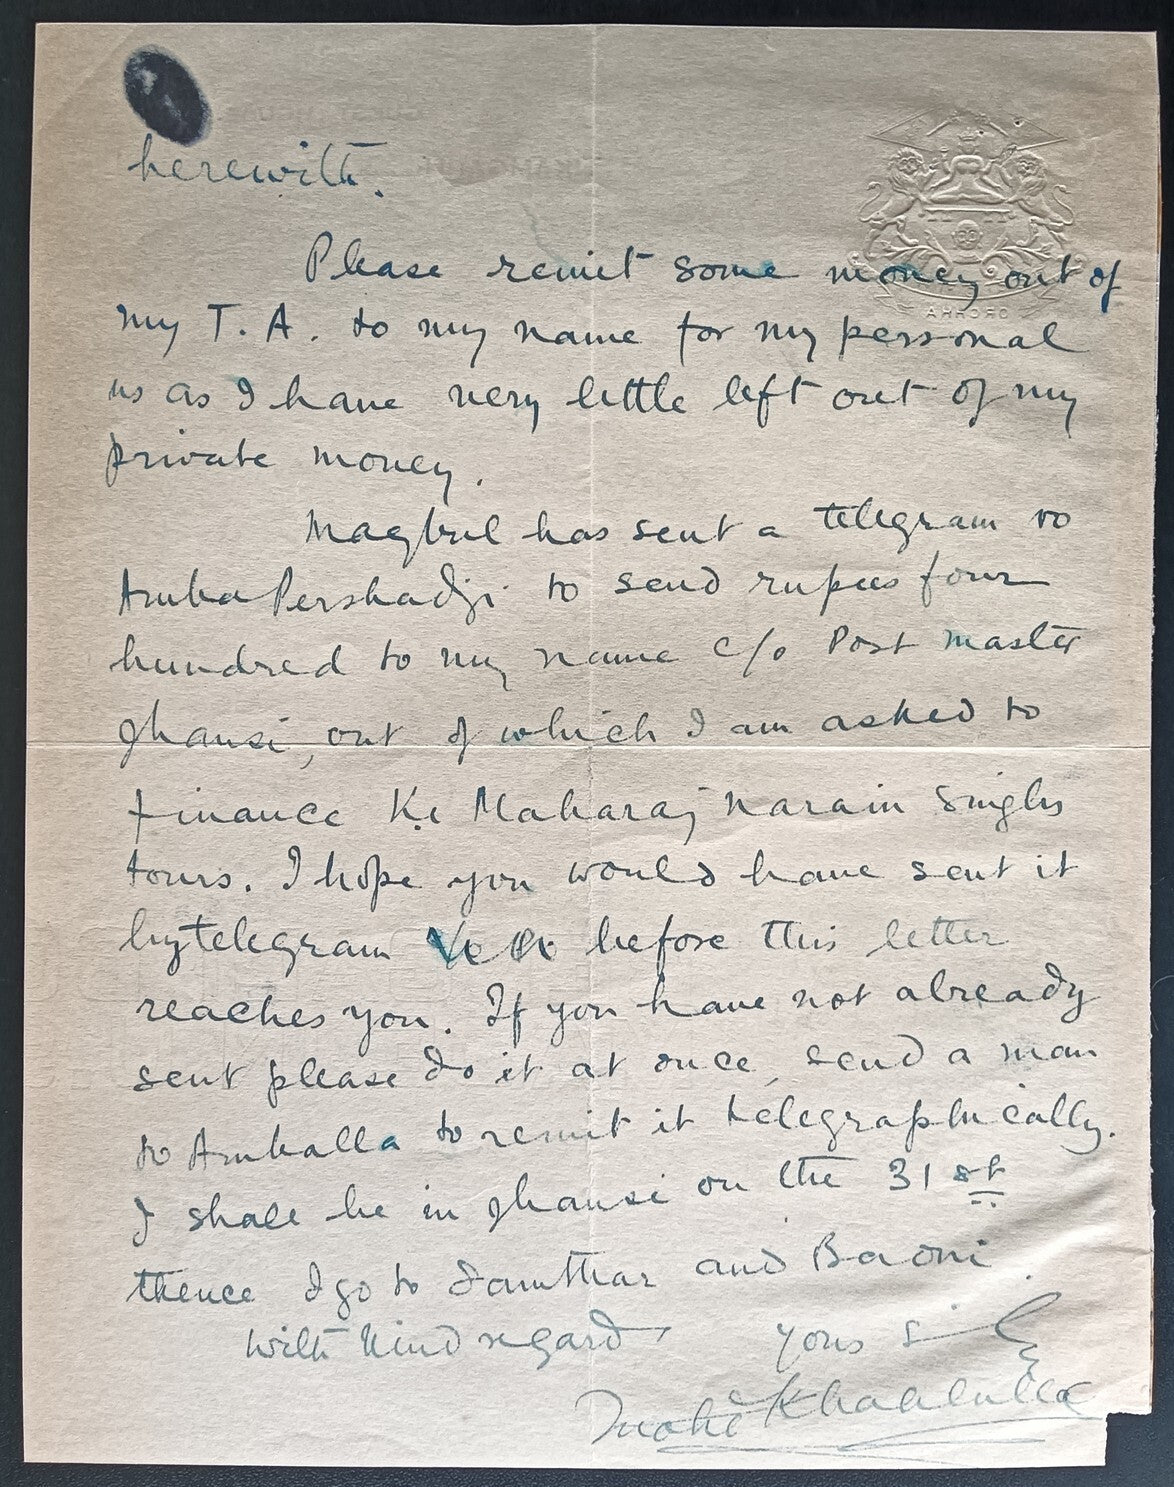 herewith.
Please remit some money out of
my T. A. to my name for my personal
us as I have very little left out of my
private money.
Maqbul has sent a telegram to
Amba Pershadji to send rupees four
hundred to my name c/o Post master
Jhansi, out of which I am asked to
finance Maharaj Narain Singhs
tours. I hope you would have sent it
by telegram before this letter
reaches you. If you have not already
sent please do it at once, send a man
to Amballa to remit it telegraphically.
I shall be in Jhansi on the 31st
thence I go to Samthar and Baoni.
With kind regard yours
Khalilulla
ORCHHA